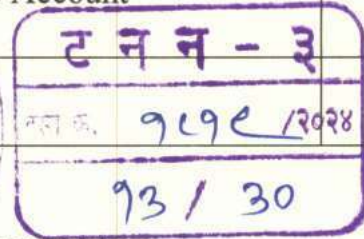 Account
ट न न - ३
क्र. १८१९/२०२४
१३ / ३०